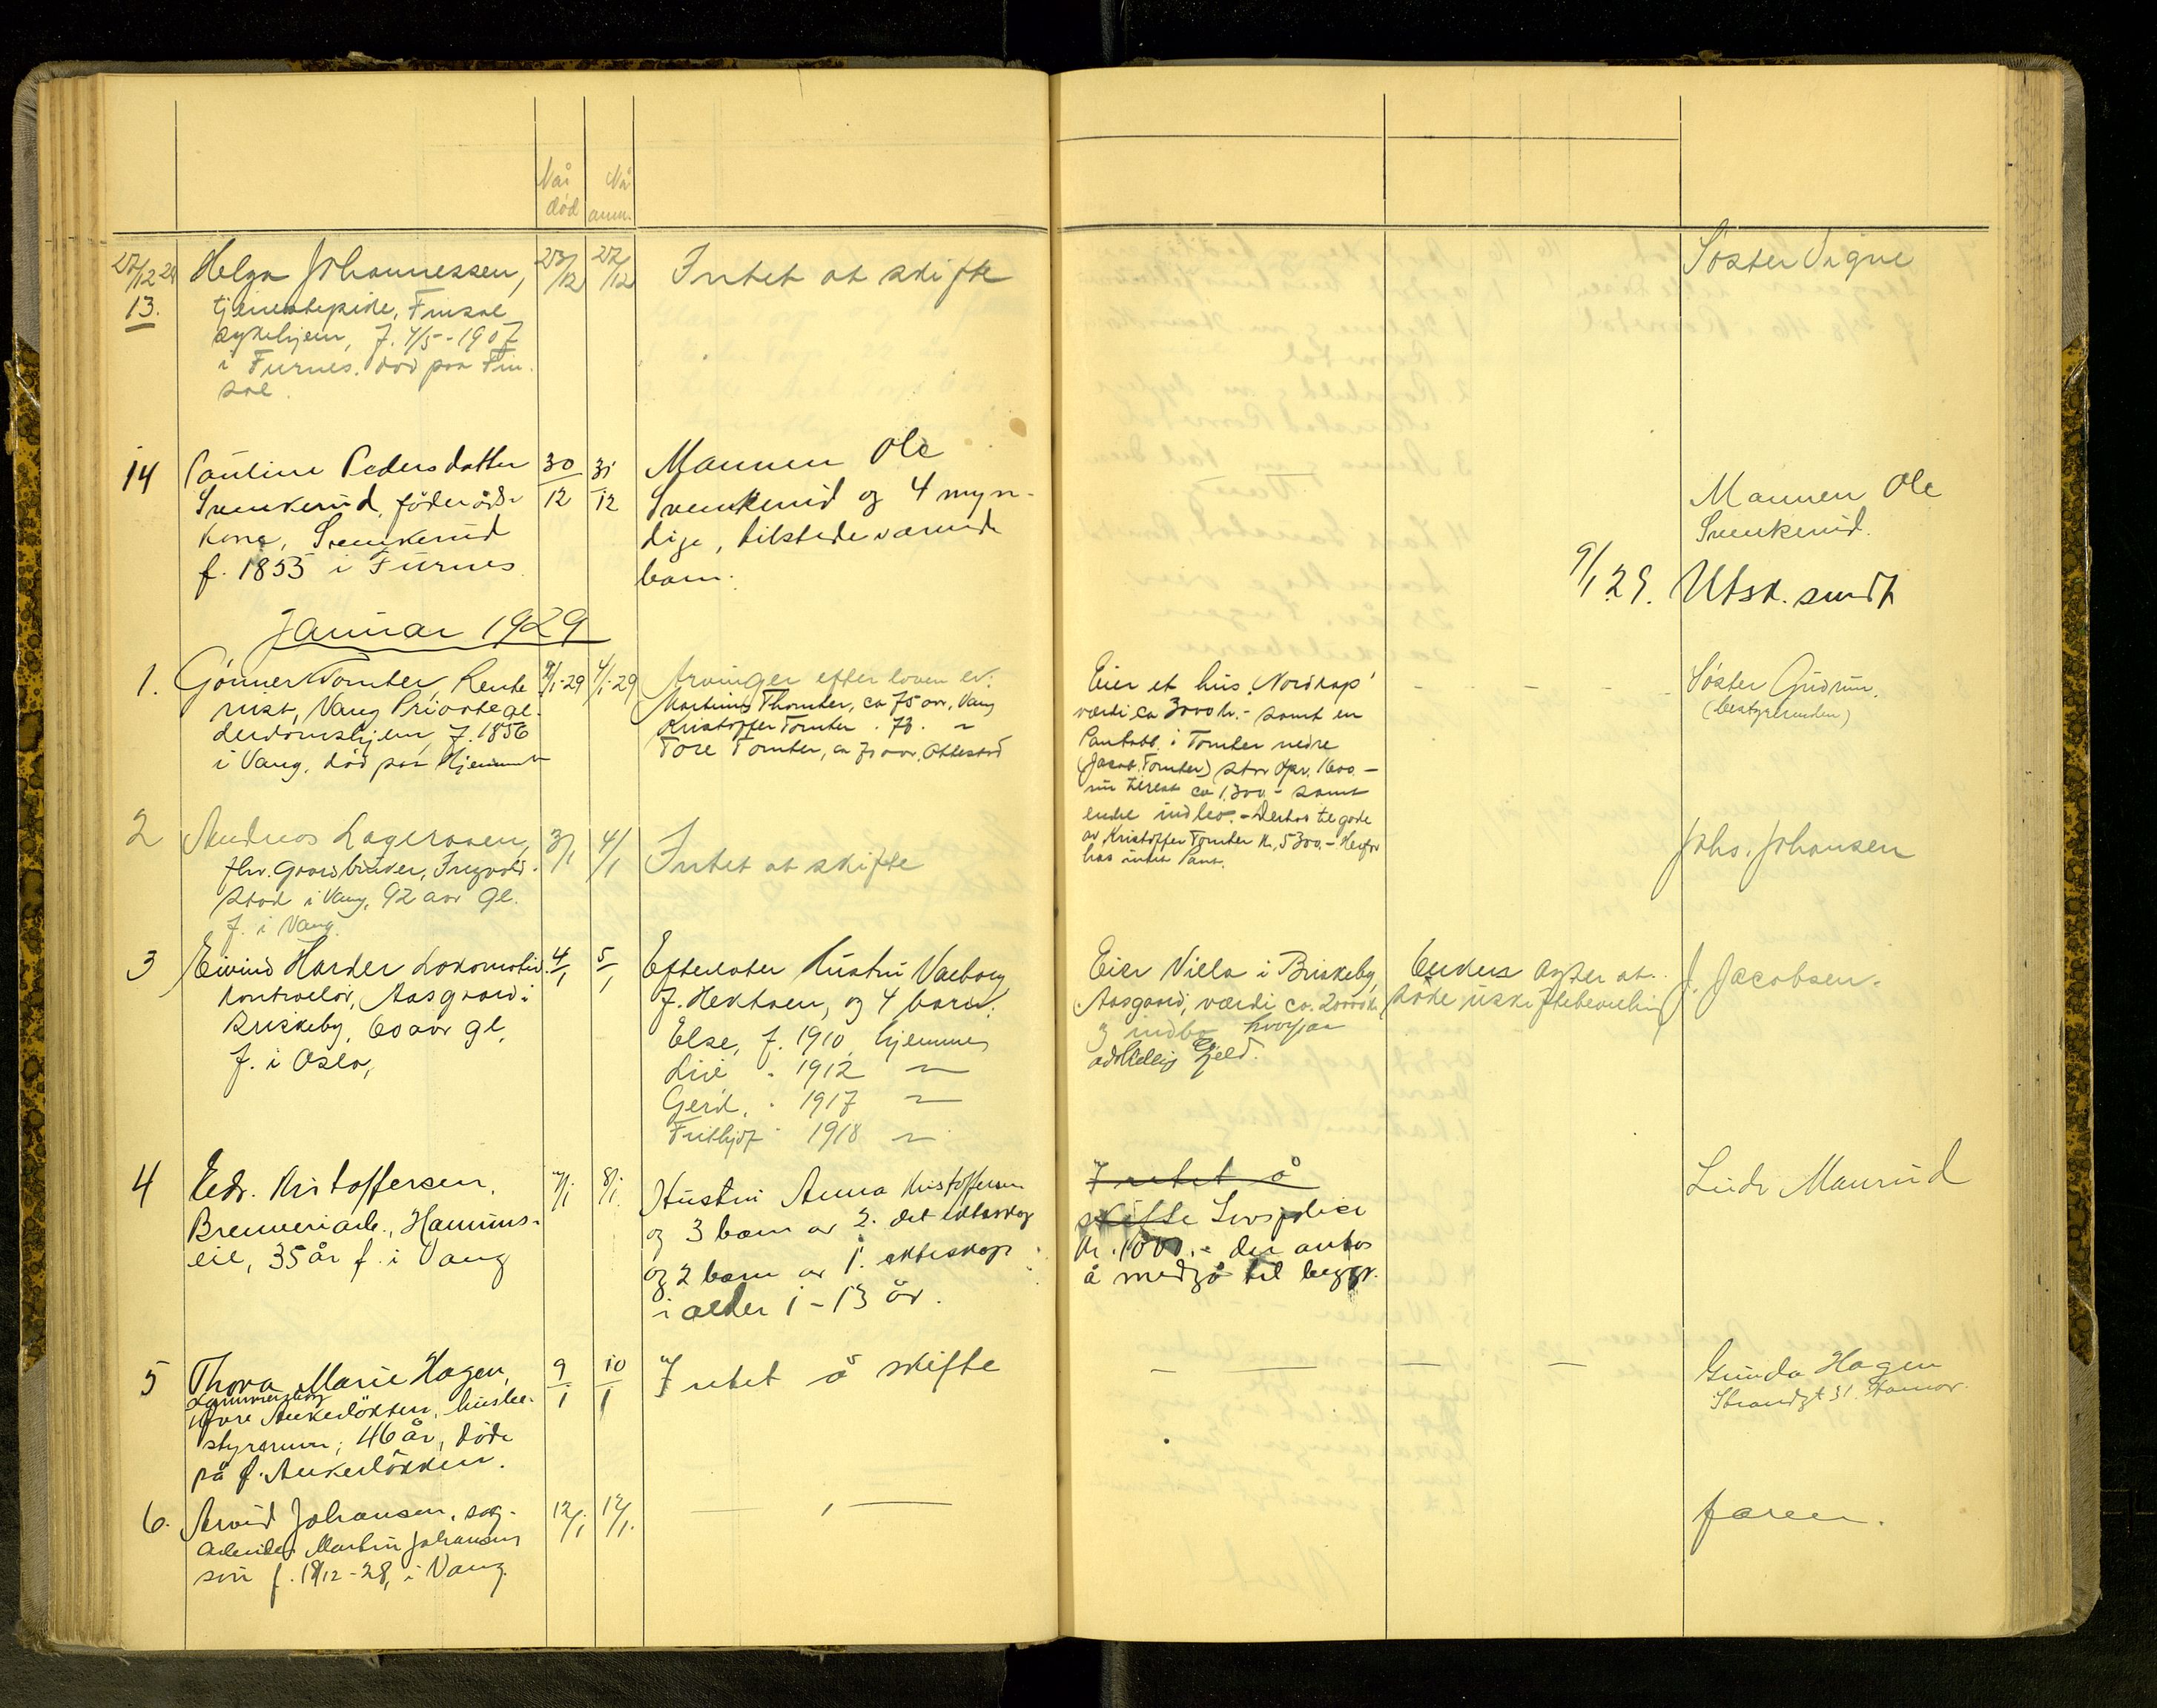 Når død
Nå anm.
27/12 28
13.
Helga Johannessen,
tjenestepike, Finsal
sykehjem, f. 4/5-1907
i Furnes. død paa Fin
sal.
23/12
27/12
Intet at skifte
Søster Signe
14
Pauline Pedersdatter
Svenkerud, föderåds-
kone, Svenkerud
f. 1853 i Furnes
30/12
31/12
Mannen Ole
Svenkerud og 4 myn-
dige, tilstedeværende
barn.
Mannen Ole
Svenkerud.
9/1 29. Utsk. sendt
Januar 1929
1.
Gunner Tomter, Rente
nist, Vang Private ge.
derdomshjem, f. 1856
i Vang, død paa Hjemmet
4/1-29
Arvinger efter loven er:
Martinus Thomter, ca 75 aar, Vang
Kristoffer Tomter . 73. "
Tore Tomter, ca 70 aar, Ottestad
Eier et hus "Nordkap"
værdi ca 3000 kr.- samt en
Pantobl. i Tomter nedre
(Jacob Tomter) stor opr. 1600.-
nu tilrest ca 1.300.- samt
endel indbo.- Derhos tilgode
av Kristoffer Tomter kr. 5300.- Herfor
has intet Pant.
Søster Gudrun.
(bestyrerinden)
2
Andreas Lageraaen,
fhv. Gaardbruker, Ingvold-
stad i Vang, 92 aar gl.
f. i Vang.
3/1
4/1
Intet at skifte
Johs. Johansen
3
Eivind Harder Lokomotiv
kontrollør, Aasgaard i
Briskeby, 60 aar gl.
f. i Oslo,
4/1
5/1
Efterlater Hustru Valborg
f. Hektoen, og 4 barn:
Else, f. 1910, hjemme
Livé . 1912 "
Gerd, . 1917 "
Frithjof . 1918 "
Eier Villa i Briskeby,
Aasgaard, værdi ca. 20000 kr
og indbo hvorpaa
adskillig Gjeld.
Enken agter at
søke uskiftebevilling
J. Jacobsen.
4
Edv. Kristoffersen,
Brenneriarb., Hamuns-
eie, 35 år f. i Vang
7/1
8/1.
Hustru Anna Kristoffersen
og 3 barn av 2. det ektesskap
og 2 barn av 1. ekteskap
i alder 1 - 13 år.
Intet å
skifte Livspolice
kr. 1000.- der antas
å medgå til begr.
Ludv Maurud
5
Thora Marie Hagen,
øvre Ankerløkken, husbe-
styrerinne, 46 år, døde
på f. Ankerløkken.
9/1
10/1
Intet å skifte
Gunda Hagen
Strandgt 31. Hamar.
6.
Arvid Johansen, sag-
arbeider Martin Johansens
sön f. 18/12-28, i Vang.
12/1
12/1.
faren.